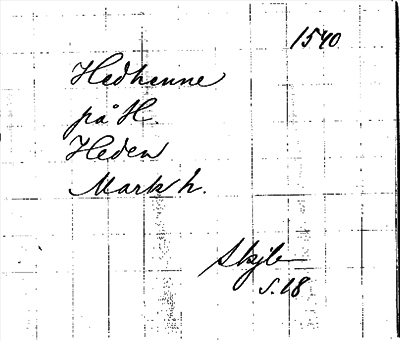 1540
Hedhenne
på H.
Heden
Mark h.
s. 18